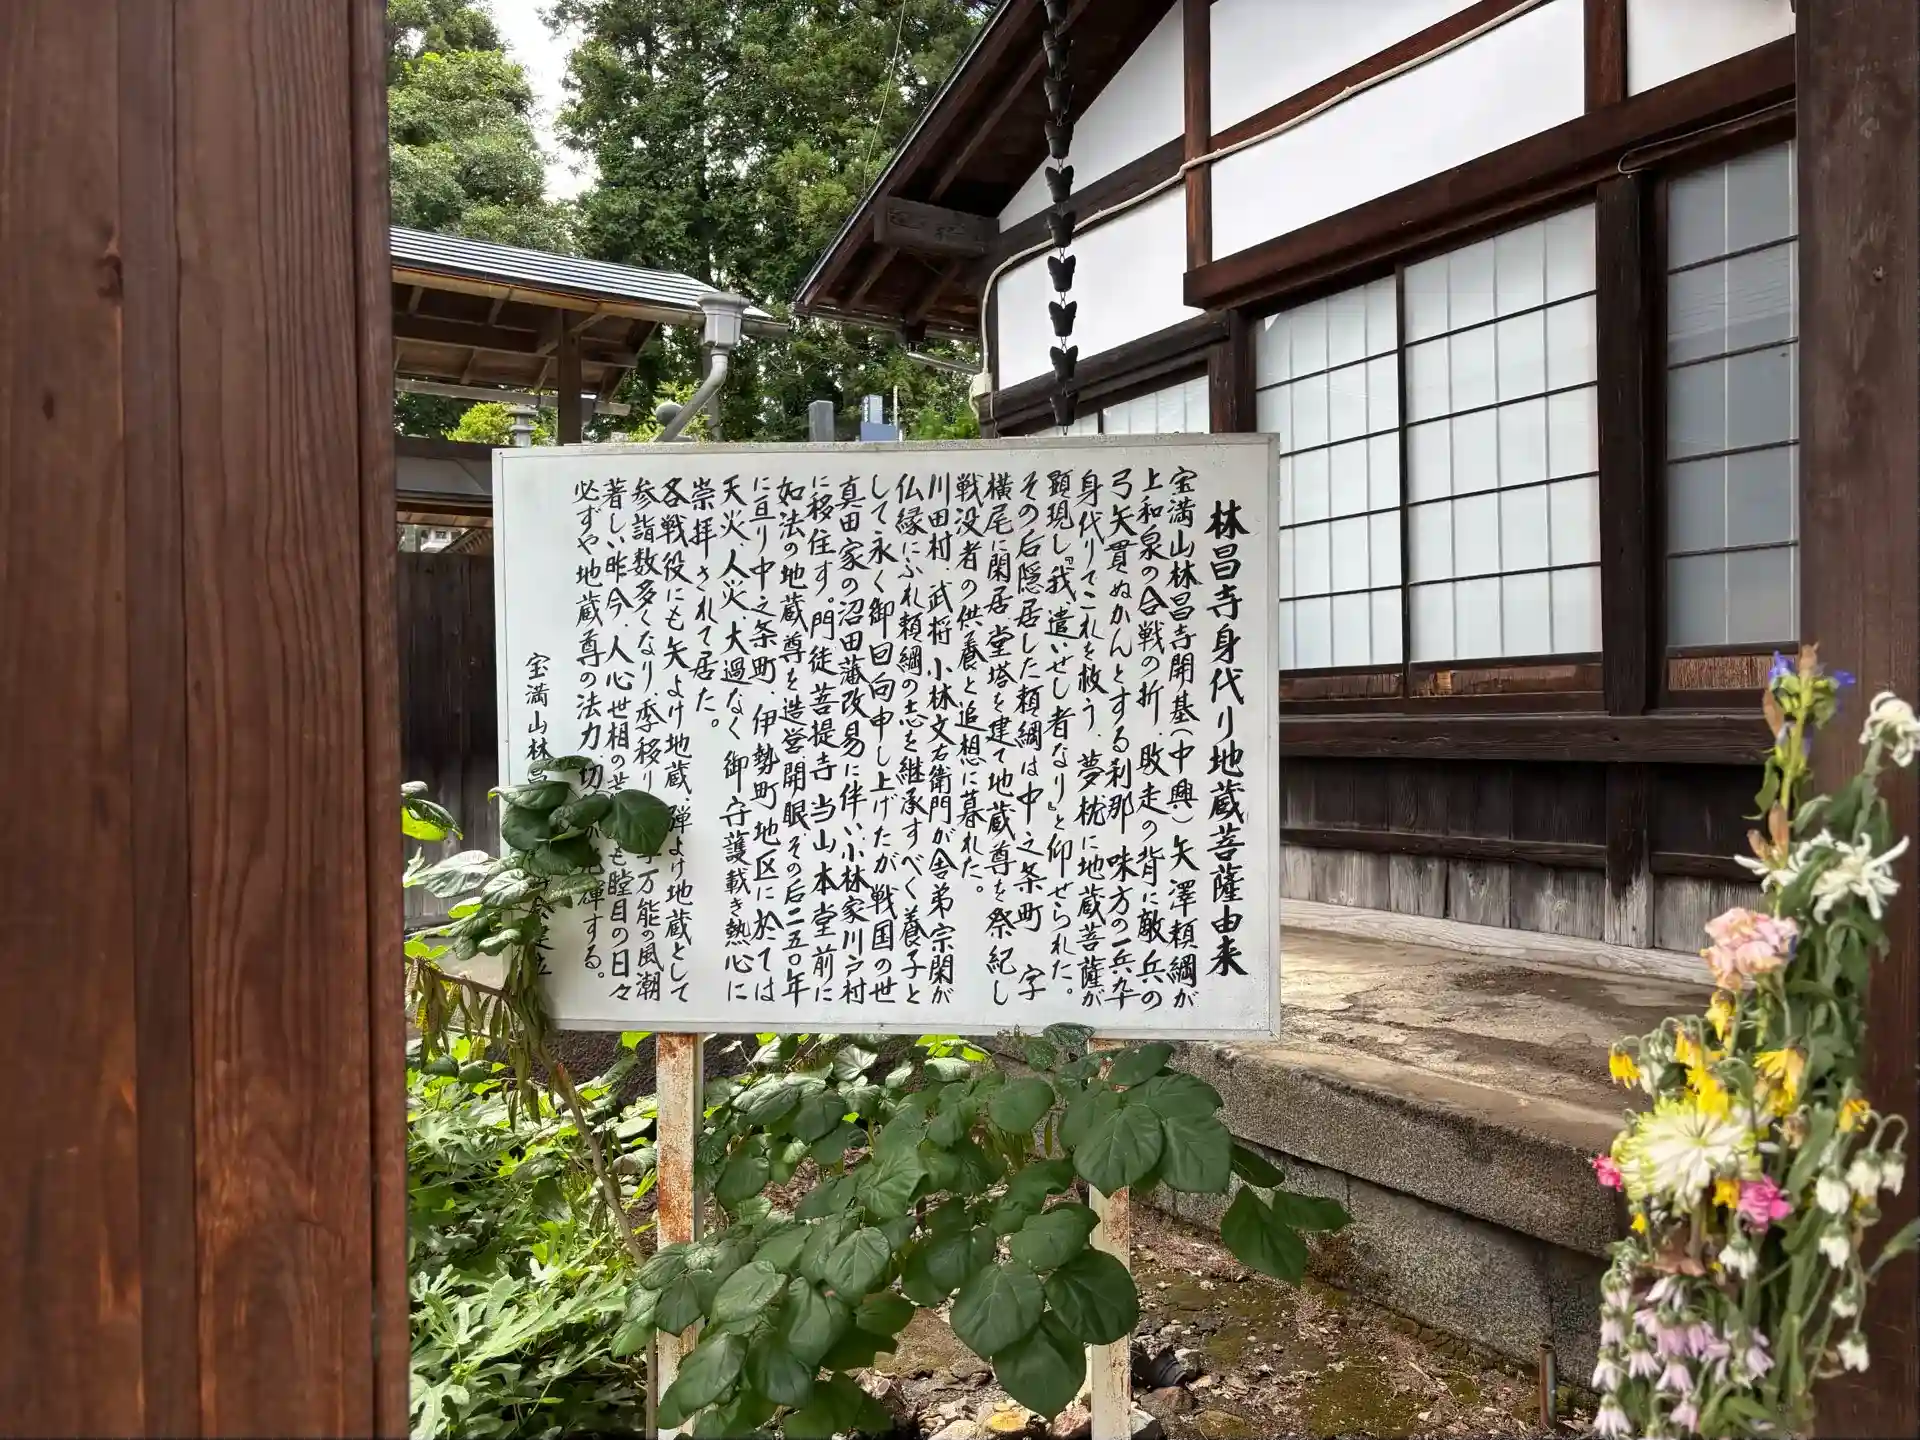 林昌寺身代り地蔵菩薩由来
宝満山林昌寺開基(中興)矢澤頼綱が
上和泉の合戦の折、敗走の背に敵兵の
弓矢貫ぬかんとする刹那味方の一兵卆
身代りてこれを救う、夢枕に地蔵菩薩が
顕現し『我、遣いせし者なり』と仰せられた。
その后隠居した頼綱は中之条町 字
横尾に閑居、堂塔を建て地蔵尊を祭紀し
戦没者の供養と追想に暮れた。
川田村、武将 小林文右衛門が舎弟宗閑が
仏縁にふれ頼綱の志を継承すべく養子と
して永く御回向申し上げたが戦国の世
真田家の沼田藩改易に伴い、小林家川戸村
に移住す。門徒菩提寺当山本堂前に
如法の地蔵尊を造営開眼、その后二五〇年
に亘り中之条町、伊勢町地区に於ては
天火、人火、大過なく御守護載き熱心に
崇拝されて居た。
各戦役にも矢よけ地蔵、弾よけ地蔵として
参詣数多くなり、季移り 万能の風潮
著しい昨今、人心世相の も瞠目の日々
必ずや地蔵尊の法力 切 輝する。
宝満山林昌 建立